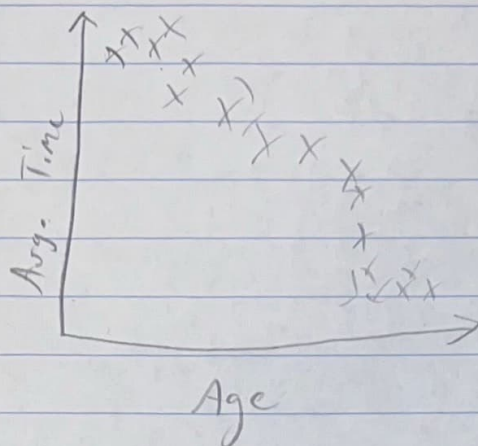 Avg. Time
Age